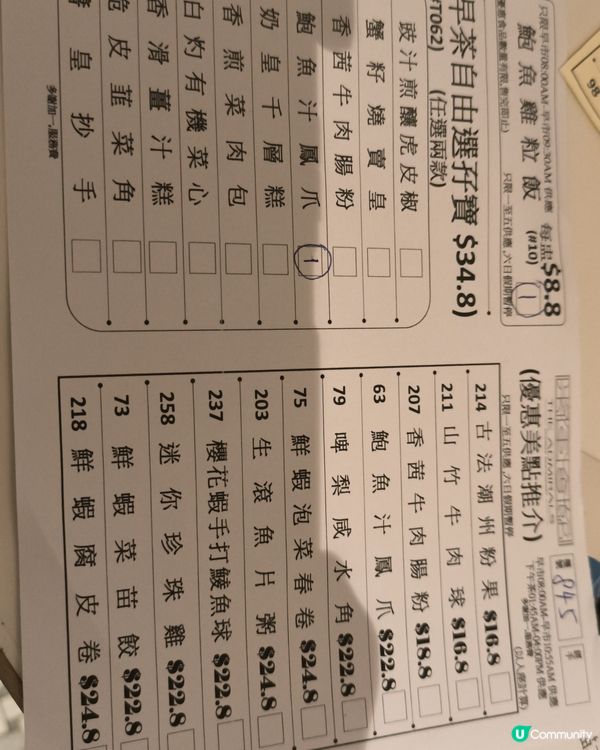 只限早市08:00AM-早市09:30AM 供應
鮑魚雞粒飯 每盅$8.8
(#10) 1
只限一至五供應,六日假期暫停
早茶自由選孖寶 $34.8)
(任選兩款)
豉汁煎釀虎皮椒
蟹籽燒賣皇
香茜牛肉腸粉
鮑魚汁鳳爪 1
奶皇千層糕
香煎菜肉包
白灼有機菜心
香滑薑汁糕
脆皮韮菜角
皇抄手
多謝加一服務費
98
(優惠美點推介)
只限一至五供應,六日假期暫停
845
早市08:00AM-早市10:55AM 供應
下午茶01:45AM-04:00PM 供應
多謝加一服務費
(以人席計算)
214 古法潮州粉果 $16.8
211 山竹牛肉球 $16.8
207 香茜牛肉腸粉 $18.8
63 鮑魚汁鳳爪 $22.8
79 啤梨咸水角 $22.8
75 鮮蝦泡菜春卷 $24.8
203 生滾魚片粥 $24.8
237 櫻花蝦手打鯪魚球 $22.8
258 迷你珍珠雞 $22.8
73 鮮蝦菜苗餃 $22.8
218 鮮蝦腐皮卷 $24.8
U Community